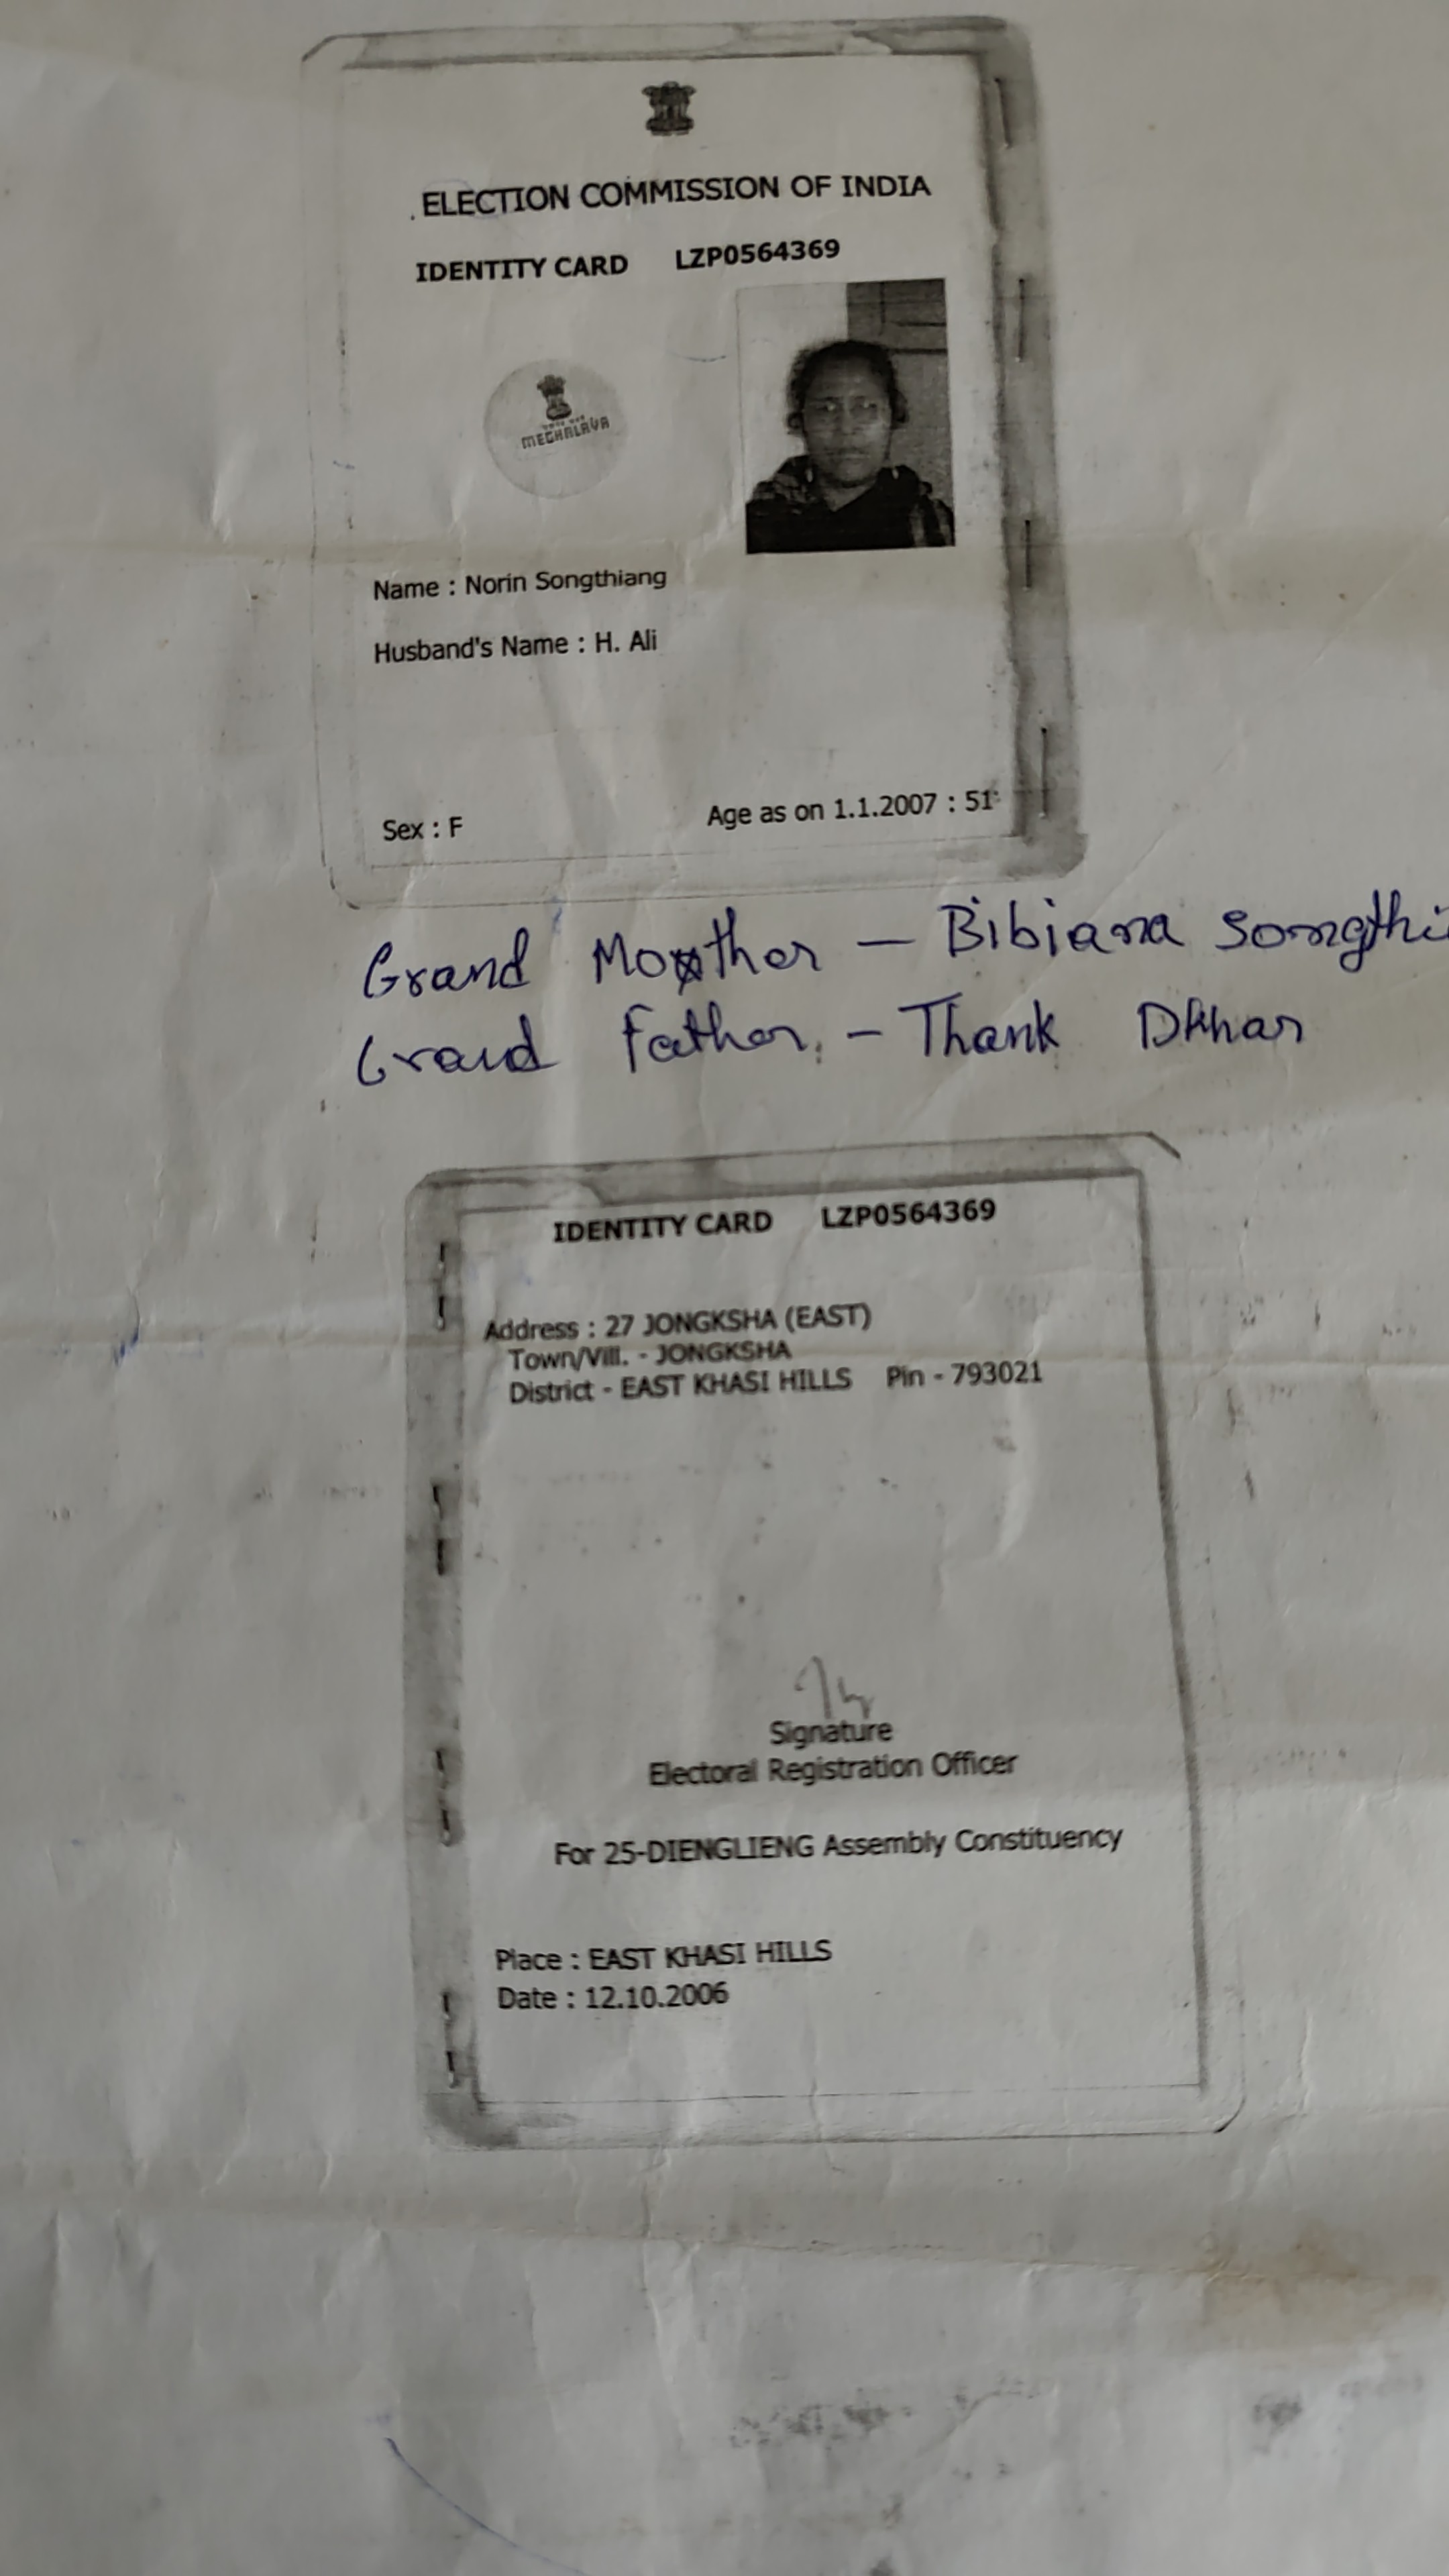 ELECTION COMMISSION OF INDIA
IDENTITY CARD LZP0564369
MEGHALAYA
Name : Norin Songthiang
Husband's Name : H. Ali
Sex : F Age as on 1.1.2007 : 51
Grand Mother — Bibiana Songthi
Grand Father. — Thank Dkhar
IDENTITY CARD LZP0564369
Address : 27 JONGKSHA (EAST)
Town/Vill. - JONGKSHA
District - EAST KHASI HILLS Pin - 793021
Signature
Electoral Registration Officer
For 25-DIENGLIENG Assembly Constituency
Place : EAST KHASI HILLS
Date : 12.10.2006